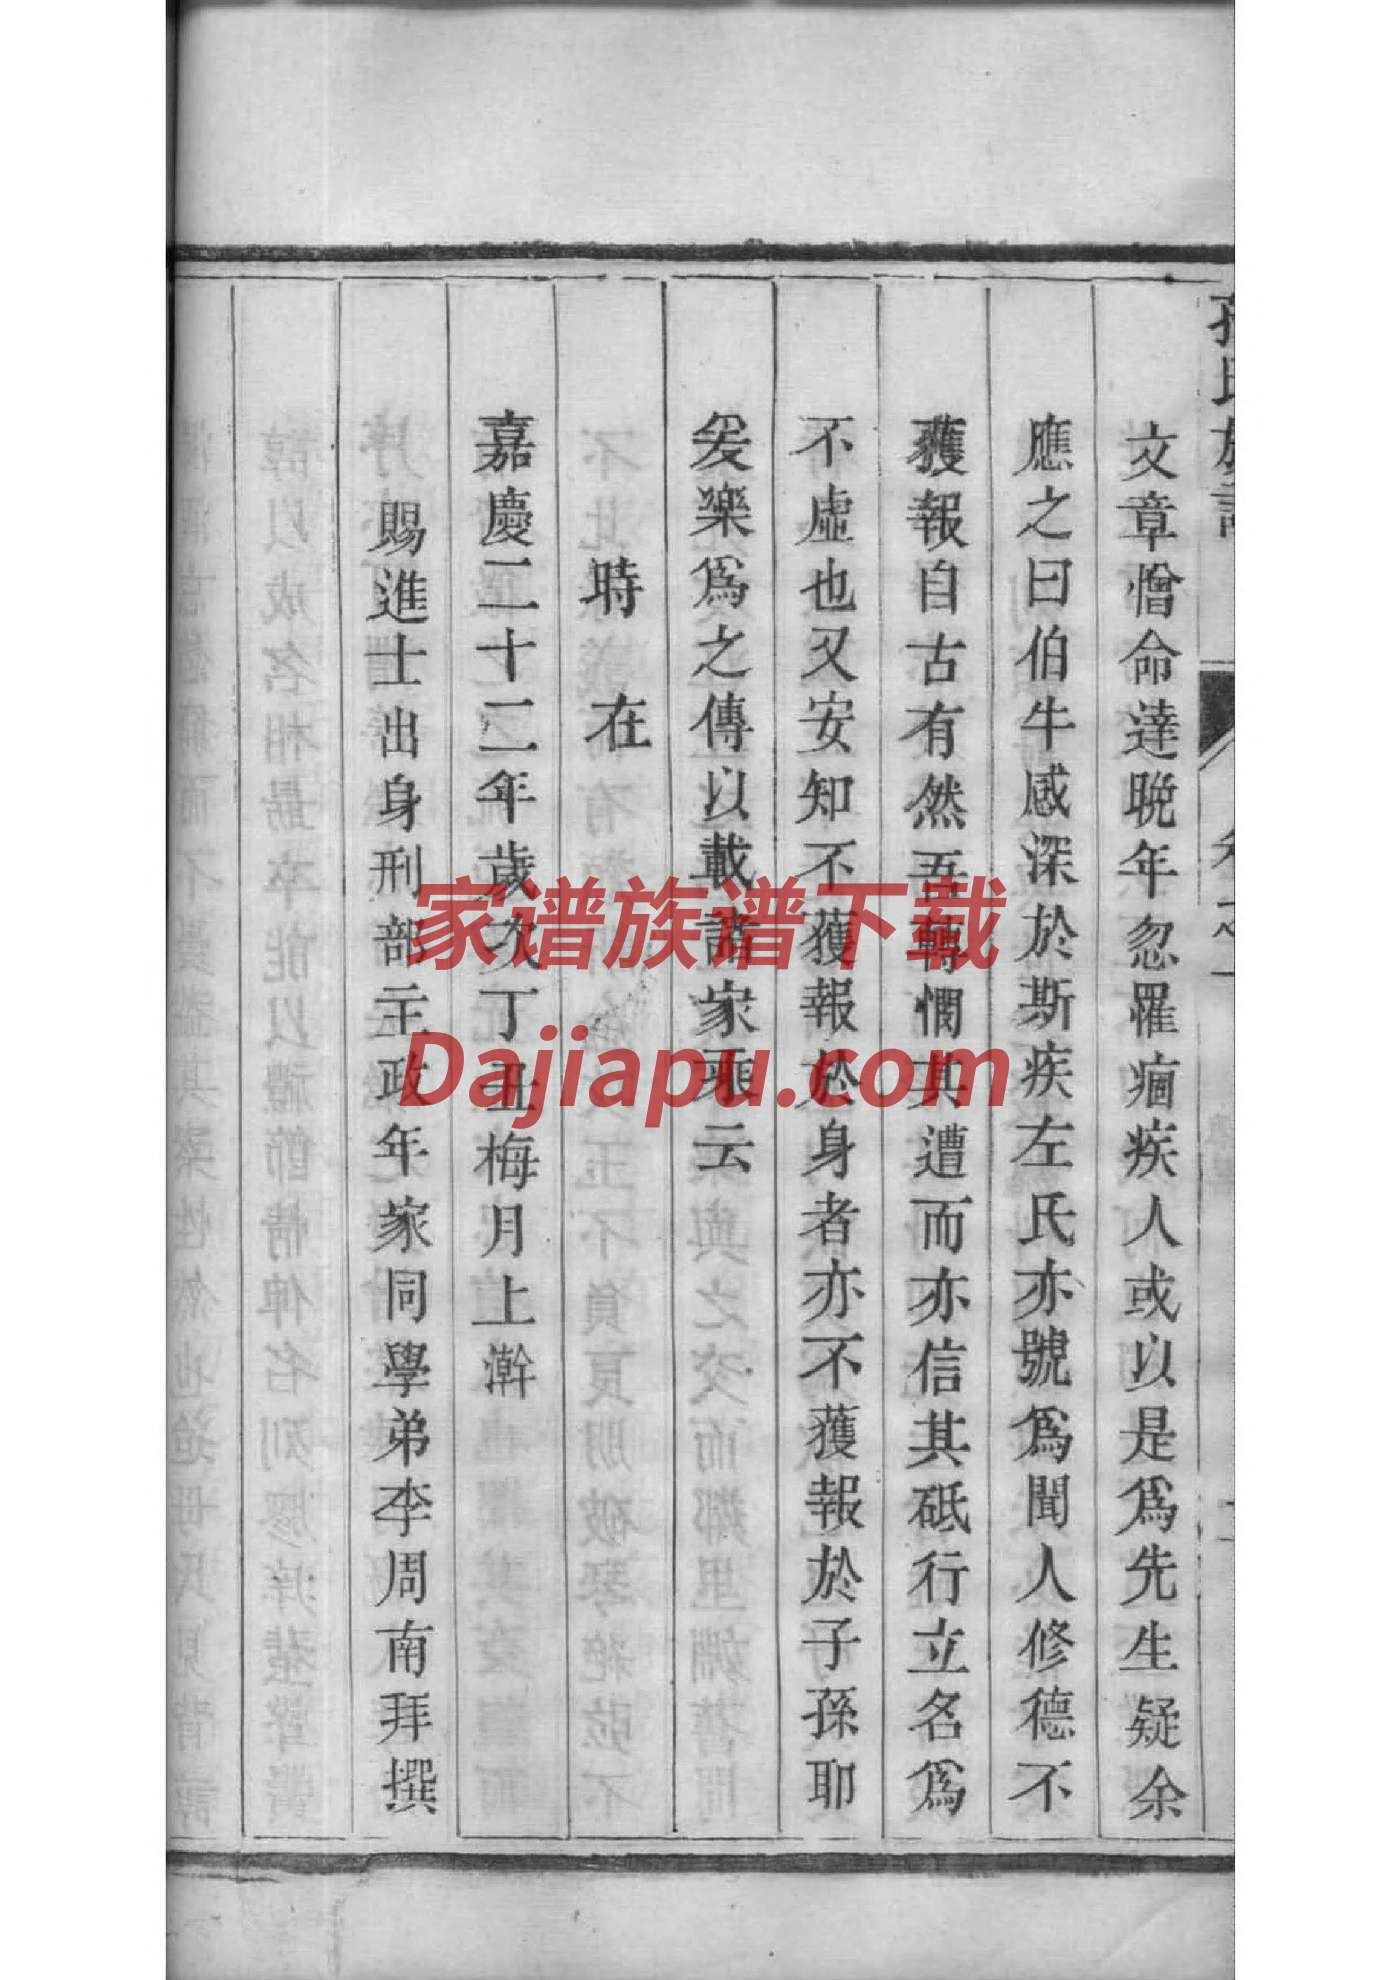 孫氏族譜 卷之一
文章憎命達晚年忽罹痼疾人或以是爲先生疑余
應之曰伯牛感深於斯疾左氏亦號爲聞人修德不
獲報自古有然吾轉憫其遭而亦信其砥行立名爲
不虛也又安知不獲報於身者亦不獲報於子孫耶
爰樂爲之傳以載諸家乘云
時在
嘉慶二十二年歲次丁丑梅月上澣
賜進士出身刑部主政年家同學弟李周南拜撰
家谱族谱下载
Dajiapu.com